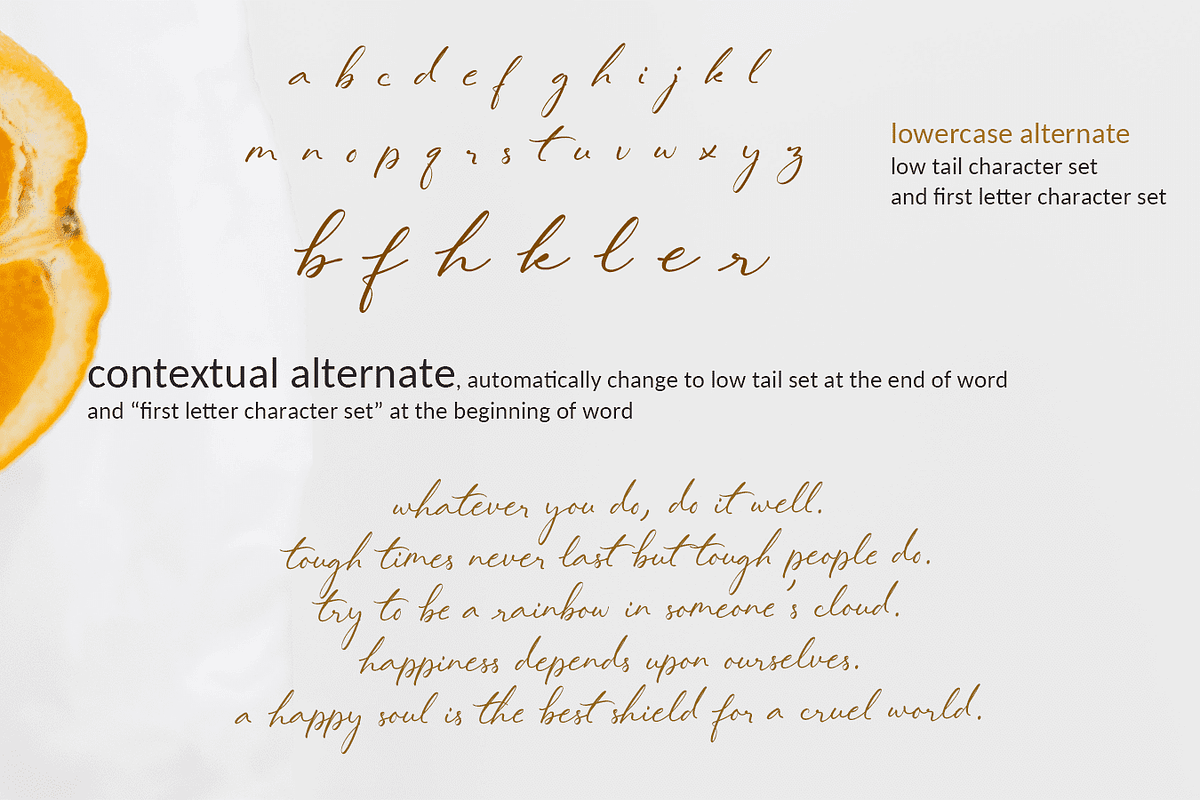 a b c d e f g h i j k l
m n o p q r s t u v w x y z
lowercase alternate
low tail character set
and first letter character set
b f h k l e r
contextual alternate, automatically change to low tail set at the end of word
and “first letter character set” at the beginning of word
whatever you do, do it well.
tough times never last but tough people do.
try to be a rainbow in someone's cloud.
happiness depends upon ourselves.
a happy soul is the best shield for a cruel world.